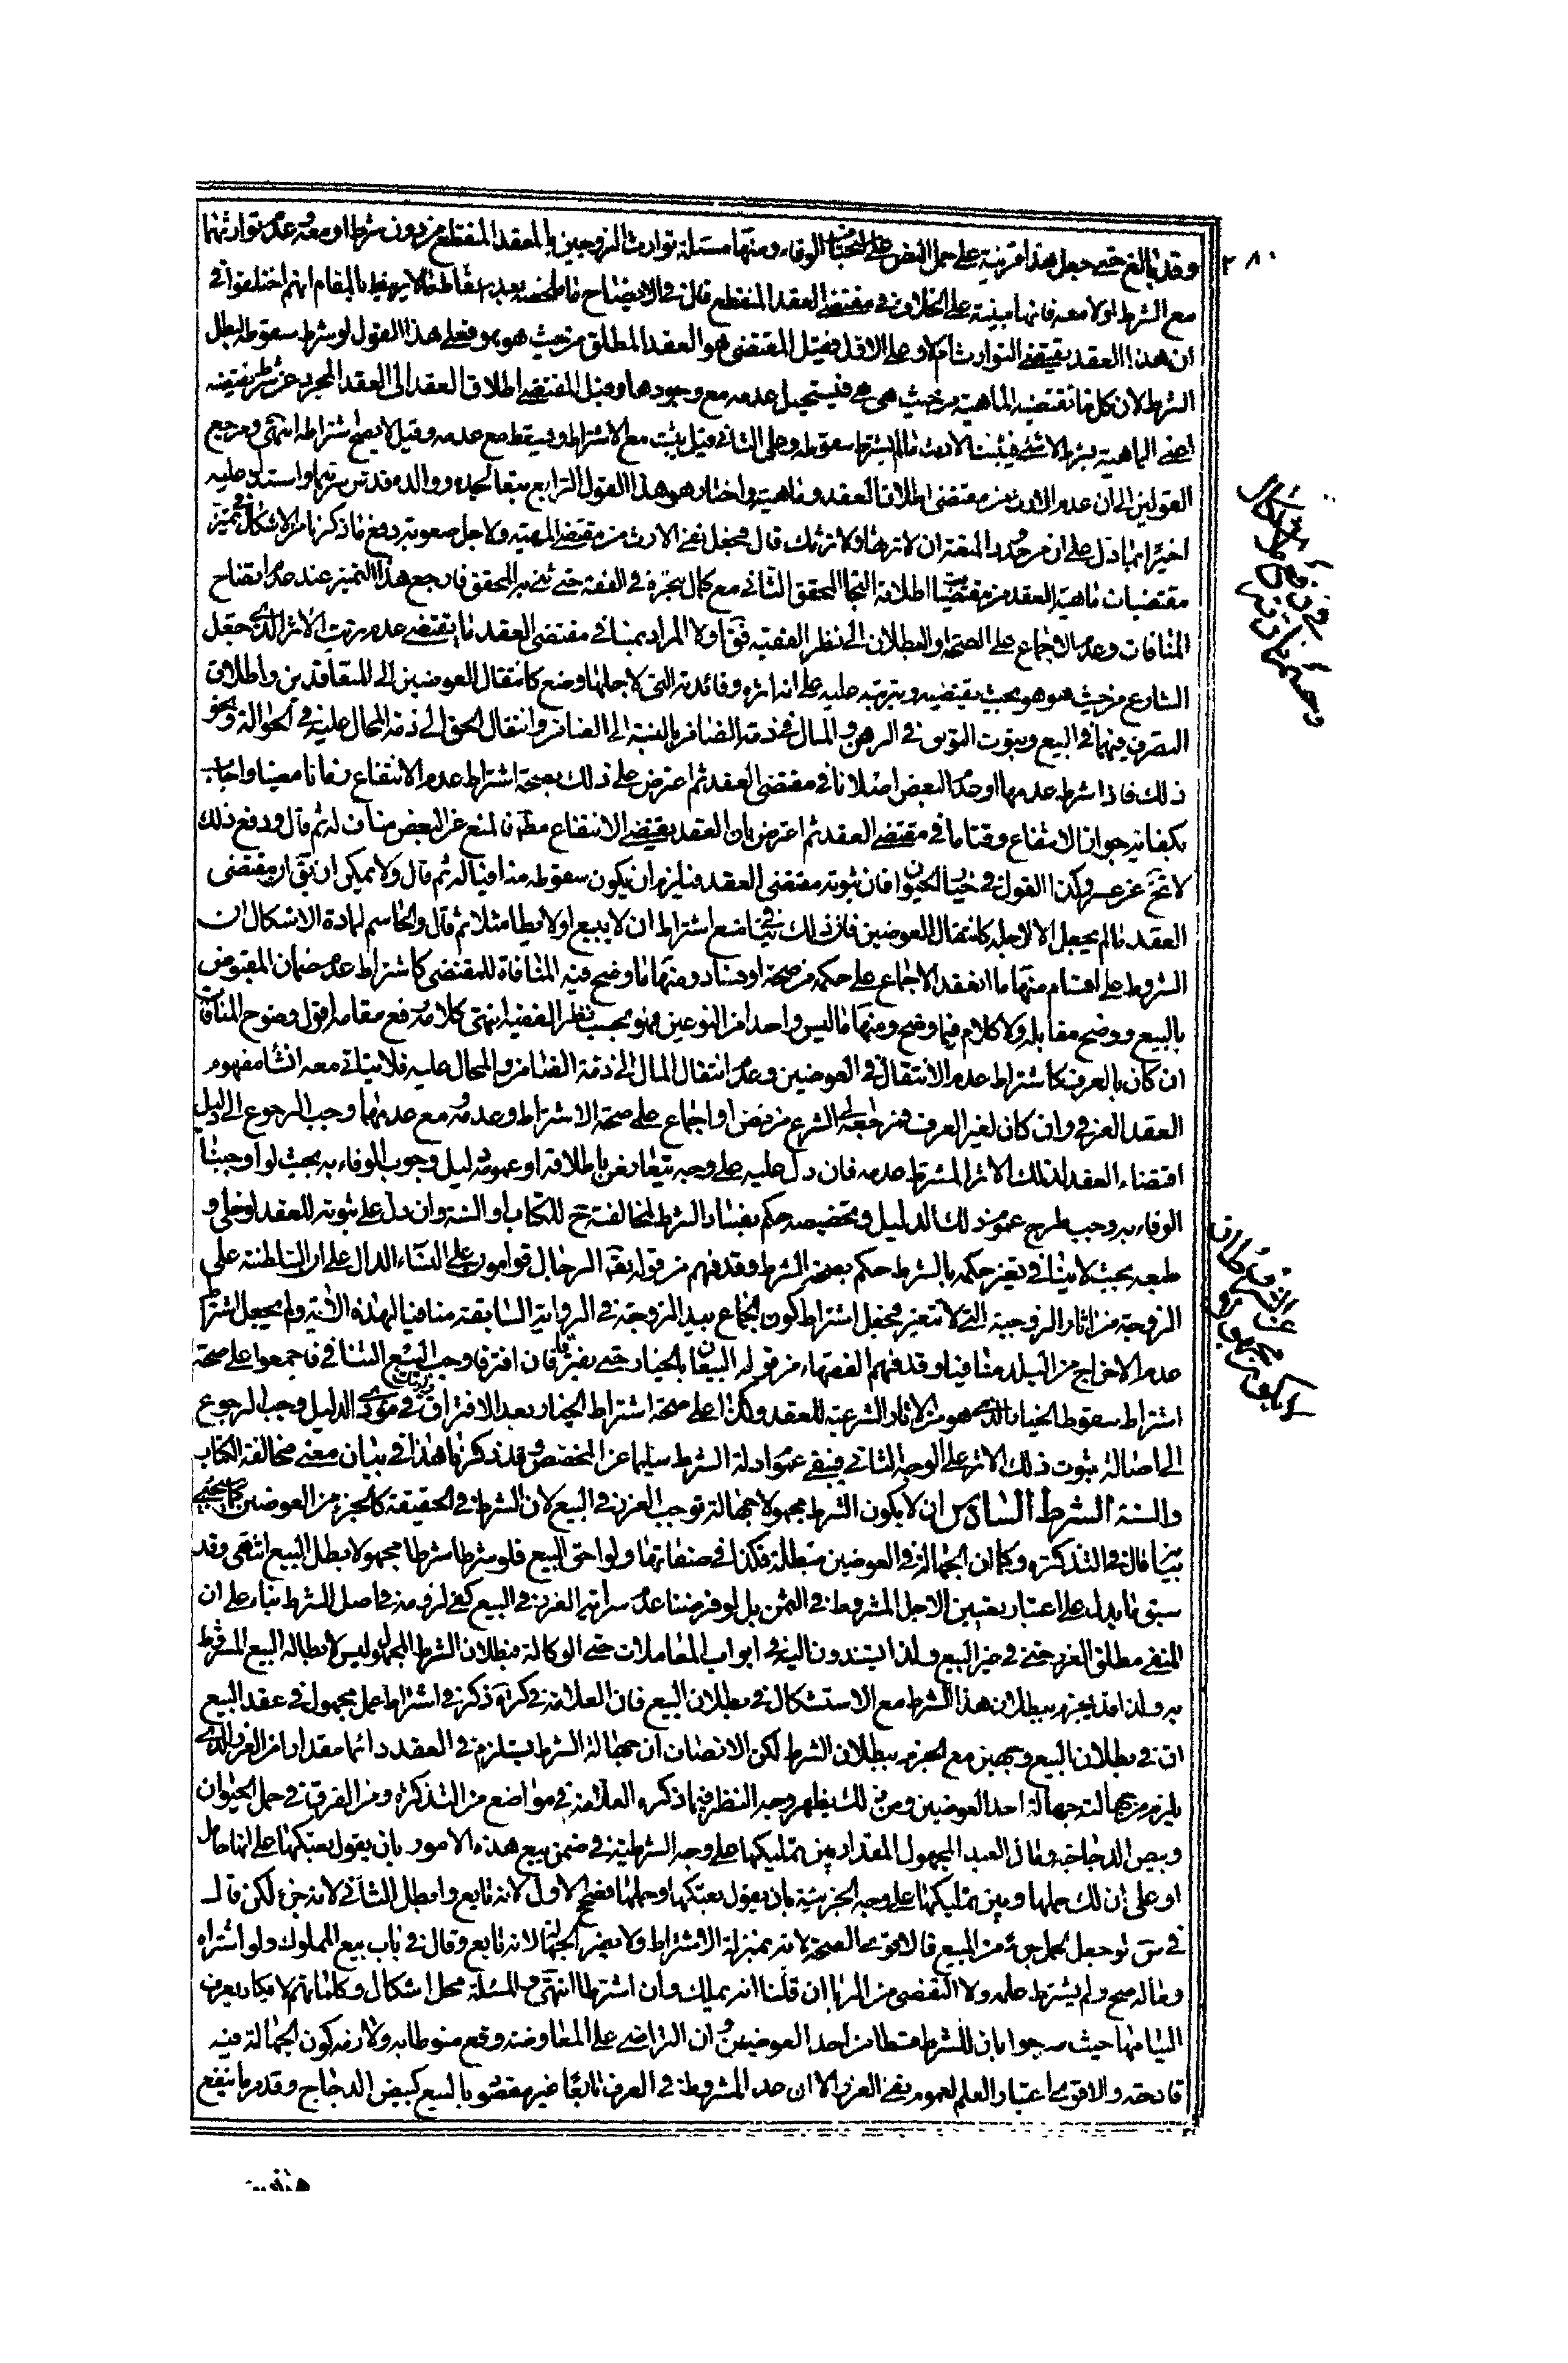 ٢٨٠
وقد بالغ حتى جعل هذا قرينة على حمل النص على استحباب الوفاء ومنها مسئلة توارث الزوجين بالعقد المنقطع من دون شرط او معه وعدم توارثهما
مع الشرط او لا معه فانها مبنية على الخلاف في مقتضى العقد المنقطع قال في الايضاح ما ملخصه بعد اسقاط ما لا يرتبط بالمقام انهم اختلفوا في
ان هذا العقد يقتضى التوارث ام لا وعلى الاول فقيل المقتضى هو العقد المطلق من حيث هو هو فعلى هذا القول لو شرط سقوطه لبطل
الشرط لان كل ما تقتضيه الماهية من حيث هى هى فيستحيل عدمه مع وجودها وقيل المقتضى اطلاق العقد اى العقد المجرد عن شرط نقيضه
اعنى الماهية بشرط لا شئ فيثبت الارث ما لم يشترط سقوطه وعلى الثانى قيل يثبت مع الاشتراط ويسقط مع عدمه وقيل لا يصح اشتراطه انتهى ومرجع
القولين الى ان عدم الارث من مقتضى اطلاق العقد وماهيته واختار هو هذا القول الرابع تبعا لجده ووالده قدس سرهما واستدل عليه
اخيرا بما دل على ان من حدود المتعة ان لا ترثها ولا ترثك قال فجعل نفى الارث من مقتضى المهية ولاجل صعوبة دفع ما ذكرنا من الاشكال فى تميز
مقتضيات ماهية العقد من مقتضيات اطلاقه التجا المحقق الثانى مع كمال تبحره فى الفقه حتى ثنى به المحقق فارجع هذا التميز عند عدم اتضاح
المنافات وعدم الاجماع على الصحة او البطلان الى نظر الفقيه فقال اولا المراد بمنافى مقتضى العقد ما يقتضى عدم ترتب الاثر الذى جعل
الشارع من حيث هو هو بحيث يقتضيه ويرتبه عليه على انه اثره وفائدته التى لاجلها وضع كانتقال العوضين الى المتعاقدين واطلاق
التصرف فيهما فى البيع وثبوت التوثق فى الرهن والمال فى ذمة الضامن بالنسبة الى الضامن وانتقال الحق الى ذمة المحال عليه فى الحوالة ونحو
ذلك فاذا شرط عدمها او عدم البعض اصلا نافى مقتضى العقد ثم اعترض على ذلك بصحة اشتراط عدم الانتفاع زمانا معينا واجاب
بكفاية جواز الانتفاع وقتا ما فى مقتضى العقد ثم اعترض بان العقد يقتضى الانتفاع مطلقا فالمنع عن البعض مناف له ثم قال ودفع ذلك
لا يخ عن عسر وكذا القول فى خيار الحيوان فان ثبوته مقتضى العقد فيلزم ان يكون سقوطه منافيا له ثم قال ولا يمكن ان يق ان مقتضى
العقد ما لم يجعل الا لاجله كانتقال العوضين فان ذلك ينافى منع اشتراط ان لا يبيع او لا يطا مثلا ثم قال والحاسم لمادة الاشكال ان
الشروط على اقسام منها ما انعقد الاجماع على حكمه من صحة او فساد ومنها ما وضح فيه المنافاة للمقتضى كاشتراط عدم ضمان المقبوض
بالبيع ووضح مقابله ولا كلام فيما وضح ومنها ما ليس واحدا من النوعين فهو بحسب نظر الفقيه انتهى كلامه رفع مقامه اقول وضوح المنافات
ان كان بالعرف كاشتراط عدم الانتقال فى العوضين وعدم انتقال المال الى ذمة الضامن والمحال عليه فلا يتاتى معه انشاء مفهوم
العقد العرفى وان كان لغير العرف فمرجعه الى الشرع من نص او اجماع على صحة الاشتراط وعدمه ومع عدمهما وجب الرجوع الى دليل
اقتضاء العقد لذلك الاثر المشترط عدمه فان دل عليه على وجه يتعارض باطلاقه او عمومه دليل وجوب الوفاء به بحيث لو اوجبنا
الوفاء به وجب طرح عموم ذلك الدليل وتخصيصه حكم بفساد الشرط لمخالفته ح للكتاب او السنة وان دل على ثبوته للعقد لو خلى و
طبعه بحيث لا ينافى تغير حكمه بالشرط حكم بصحة الشرط وقد فهم من قوله تعالى الرجال قوامون على النساء الدال على ان السلطنة على
الزوجة من اثار الزوجية التى لا تتغير فجعل اشتراط كون الجماع بيد الزوجة فى الرواية السابقة منافيا لهذه الاية ولم يجعل اشتراط
عدم الاخراج من البلد منافيا وقد فهم الفقهاء من قوله البيعان بالخيار حتى يفترقا فان افترقا وجب البيع التنافى فاجمعوا على صحة
اشتراط سقوط الخيار الذى هو من الاثار الشرعية للعقد وكذا على صحة اشتراط الخيار بعد الافتراق ولو شك فى مؤدى الدليل وجب الرجوع
الى اصالة ثبوت ذلك الاثر على الوجه الثانى فيبقى عموم ادلة الشرط سليما عن المخصص وقد ذكرنا هذا فى بيان معنى مخالفة الكتاب
والسنة الشرط السادس ان لا يكون الشرط مجهولا جهالة توجب الغرر فى البيع لان الشرط فى الحقيقة كالجزء من العوضين كما سيجئ
بيانه قال فى التذكرة وكما ان الجهالة فى العوضين مبطلة فكذا فى صفاتهما ولواحق البيع فلو شرطا شرطا مجهولا بطل البيع انتهى وقد
سبق ما يدل على اعتبار تعيين الاجل المشروط فى الثمن بل لو فرضنا عدم سراية الغرر فى البيع كفى لزومه فى اصل الشرط بناء على ان
المنفى مطلق الغرر حتى فى غير البيع ولذا يستندون اليه فى ابواب المعاملات حتى الوكالة فبطلان الشرط المجهول ليس لابطاله البيع المشروط
به ولذا قد يجزم ببطلان هذا الشرط مع الاستشكال فى بطلان البيع فان العلامة فى كرة ذكر فى اشتراط عمل مجهول فى عقد البيع
ان فى بطلان البيع وجهين مع الجزم ببطلان الشرط لكن الانصاف ان جهالة الشرط يستلزم فى العقد دائما مقدارا من الغرر الذى
يلزم من جهالته جهالة احد العوضين ومن ذلك يظهر وجه النظر فيما ذكره العلامة فى مواضع من التذكرة ومن الفرق فى حمل الحيوان
وبيض الدجاجة ومال العبد المجهول المقدار بين تمليكها على وجه الشرطية فى ضمن بيع هذه الامور بان يقول بعتكها على انها حامل
او على ان لك حملها وبين تمليكها على وجه الجزئية بان يقول بعتكها وحملها فصحح الاول لانه تابع وابطل الثانى لانه جزء لكن قال
فى س لو جعل الحمل جزءا من المبيع فالاقوى الصحة لانه بمنزلة الاشتراط ولا يضر الجهالة لانه تابع وقال فى باب بيع المملوك ولو اشتراه
وماله صح ولم يشترط علمه ولا التفصى من الربا ان قلنا انه يملك وان اشترطا انتهى والمسئلة محل اشكال وكلماتهم لا يكاد يعرف
التيامها حيث صرحوا بان للشرط قسطا من احد العوضين وان التراضى على المعاوضة وقع منوطا به ولازمه كون الجهالة فيه
قادحة والاقوى اعتبار العلم لعموم نفى الغرر الا ان عد المشروط فى العرف تابعا غير مقصود بالبيع كبيض الدجاج وقد مر ما ينفع